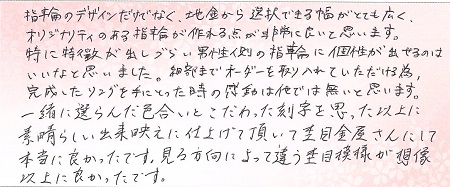 指輪のデザインだけでなく、地金から選択できる幅がとても広く、
オリジナリティのある指輪が作れる点が非常に良いと思います。
特に特徴が出しづらい男性側の指輪に個性が出せるのは
いいなと思いました。細部までオーダーを取り入れていただける為、
完成したリングを手にとった時の感動は他では無いと思います。
一緒に選らんだ色合いとこだわった刻字を思った以上に
素晴らしい出来映えに仕上げて頂いて杢目金屋さんにして
本当に良かったです。見る方向によって違う杢目模様が想像
以上に良かったです。